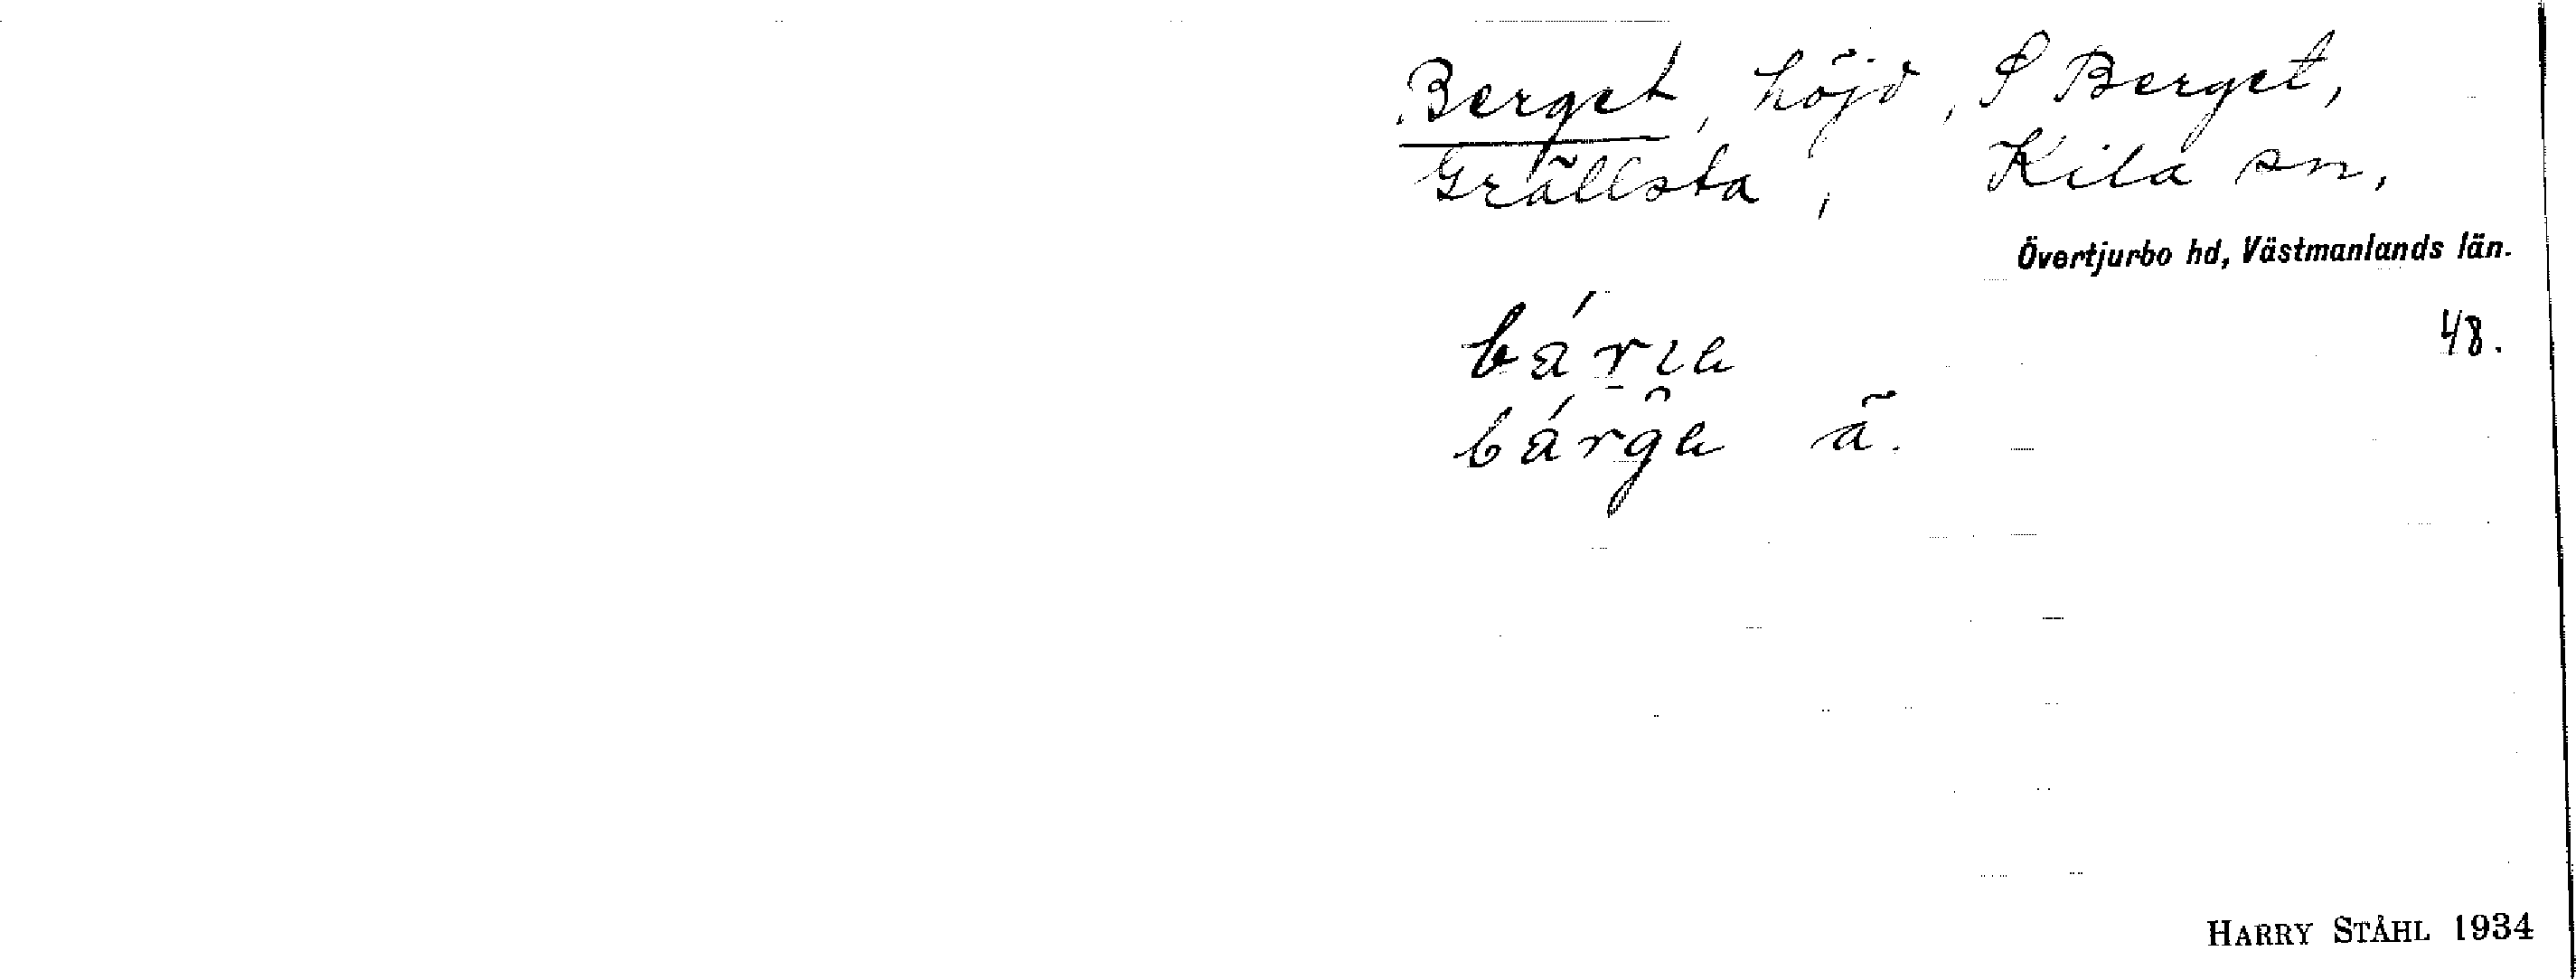 Berget, höjd, S Berget,
Grällsta, Kila sn,
Övertjurbo hd, Västmanlands län.
48.
ä.
HARRY STÅHL 1934